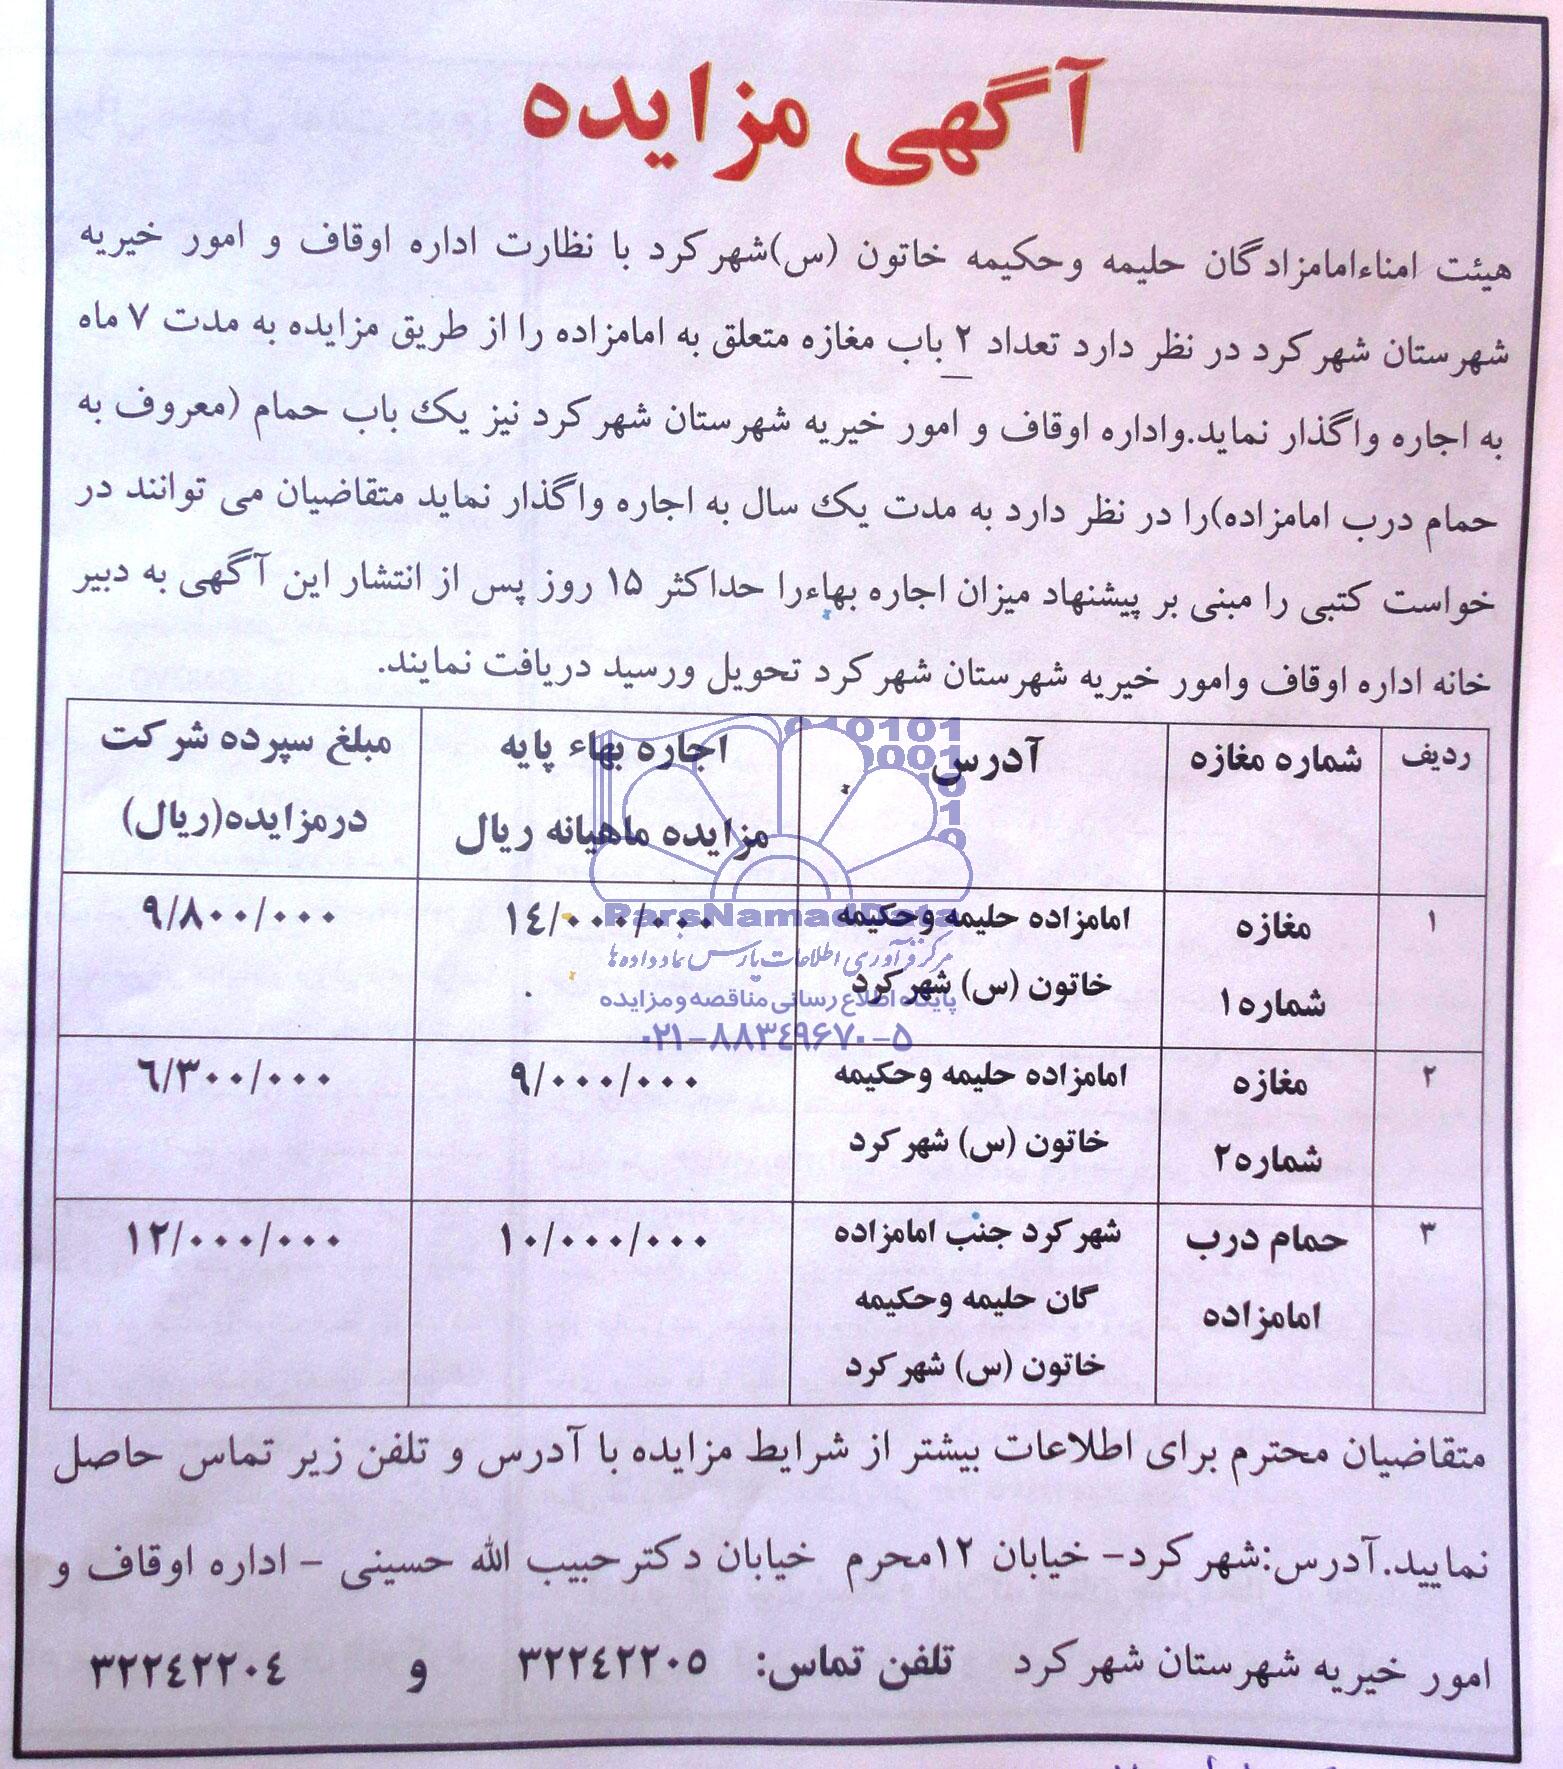 آگهی مزایده
هیئت امناءامامزادگان حلیمه وحکیمه خاتون (س)شهرکرد با نظارت اداره اوقاف و امور خیریه
شهرستان شهرکرد در نظر دارد تعداد ۲ باب مغازه متعلق به امامزاده را از طریق مزایده به مدت ۷ ماه
به اجاره واگذار نماید.واداره اوقاف و امور خیریه شهرستان شهرکرد نیز یک باب حمام (معروف به
حمام درب امامزاده)را در نظر دارد به مدت یک سال به اجاره واگذار نماید متقاضیان می توانند در
خواست کتبی را مبنی بر پیشنهاد میزان اجاره بهاءرا حداکثر ۱۵ روز پس از انتشار این آگهی به دبیر
خانه اداره اوقاف وامور خیریه شهرستان شهرکرد تحویل ورسید دریافت نمایند.
ردیف شماره مغازه آدرس اجاره بهاء پایه مبلغ سپرده شرکت
مزایده ماهیانه ریال درمزایده(ریال)
۱ مغازه امامزاده حلیمه وحکیمه ۱۴/۰۰۰/۰۰۰ ۹/۸۰۰/۰۰۰
شماره۱ خاتون (س) شهرکرد
۲ مغازه امامزاده حلیمه وحکیمه ۹/۰۰۰/۰۰۰ ۶/۳۰۰/۰۰۰
شماره۲ خاتون (س) شهرکرد
۳ حمام درب شهرکرد جنب امامزاده ۱۰/۰۰۰/۰۰۰ ۱۲/۰۰۰/۰۰۰
امامزاده گان حلیمه وحکیمه
خاتون (س) شهرکرد
متقاضیان محترم برای اطلاعات بیشتر از شرایط مزایده با آدرس و تلفن زیر تماس حاصل
نمایید.آدرس:شهرکرد- خیابان ۱۲محرم خیابان دکترحبیب الله حسینی - اداره اوقاف و
امور خیریه شهرستان شهرکرد تلفن تماس: ۳۲۲۴۲۲۰۵ و ۳۲۲۴۲۲۰۴
ParsNamadData
مرکز فرآوری اطلاعات پارس نماد داده ها
پایگاه اطلاع رسانی مناقصه و مزایده
۰۲۱-۸۸۳۴۹۶۷۰-۵